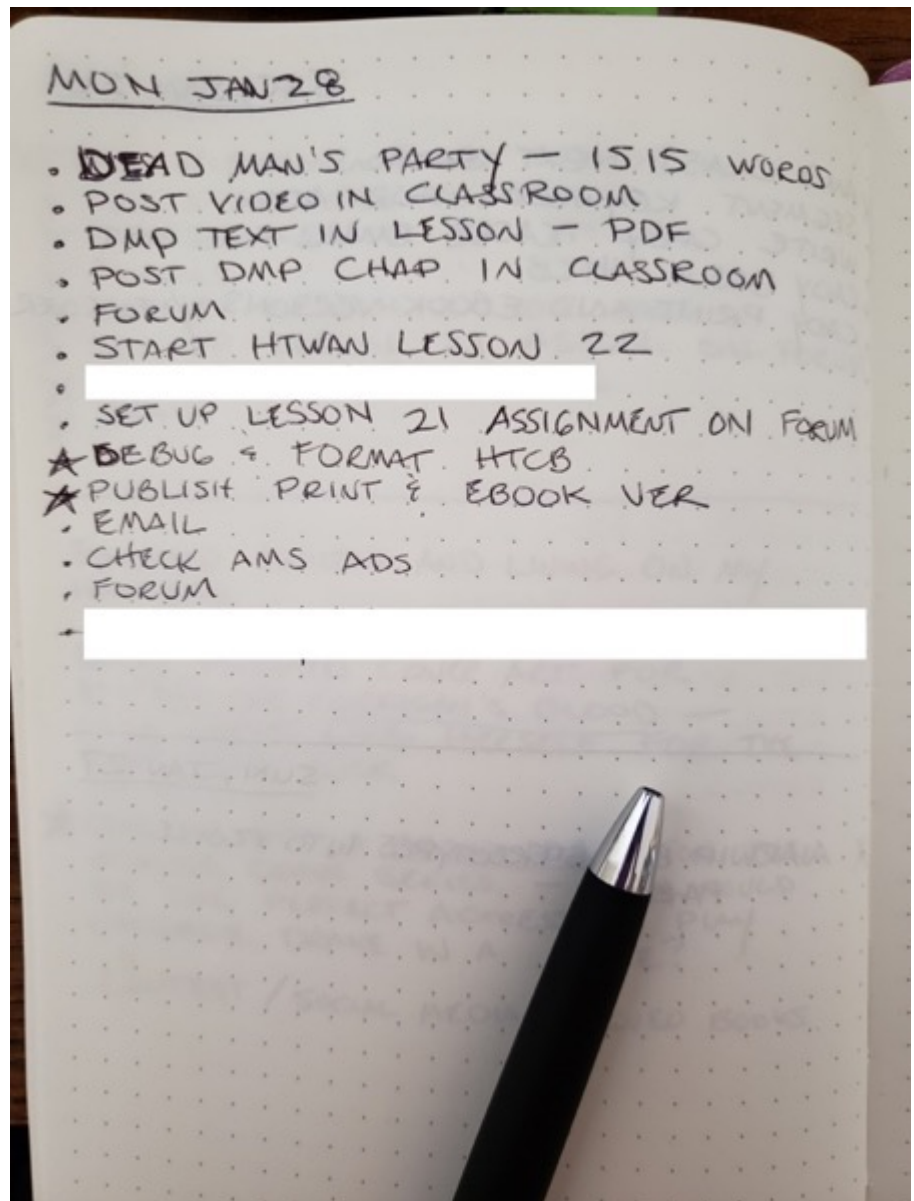 MON JAN 28
. DEAD MAN'S PARTY — 1515 WORDS
. POST VIDEO IN CLASSROOM
. DMP TEXT IN LESSON — PDF
. POST DMP CHAP IN CLASSROOM
. FORUM
. START HTWAN LESSON 22
.
. SET UP LESSON 21 ASSIGNMENT ON FORUM
★ DEBUG & FORMAT HTCB
★ PUBLISH PRINT & EBOOK VER
. EMAIL
. CHECK AMS ADS
. FORUM
.